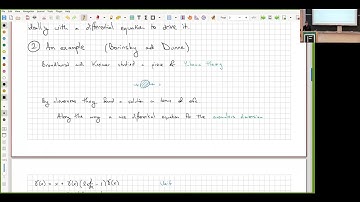 ideally with a differential equation to drive it.
② An example (Borinsky and Dunne)
Broadhurst and Kreimer studied a piece of Yukawa theory
By cleverness they found a solution in terms of erfc.
Along the way a nice differential equation for the anomalous dimension
γ(x) = x + γ(x)(2x d/dx - 1)γ(x)